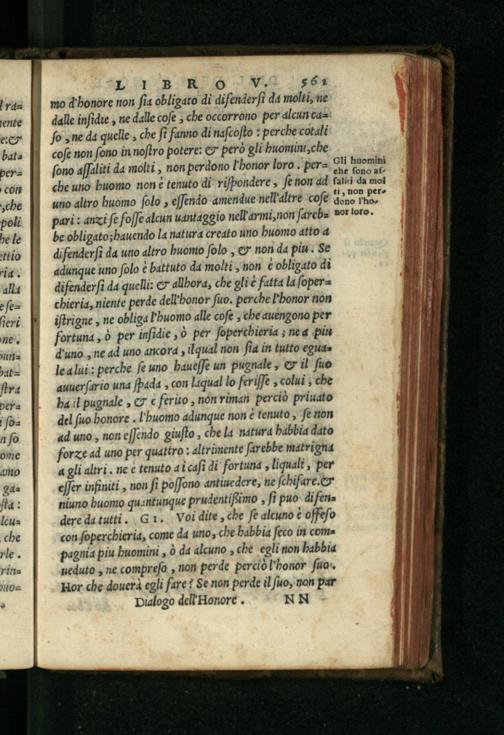 LIBRO V. 561
mo d'honore non ſia obligato di difenderſi da molti, ne
dalle inſidie, ne dalle coſe, che occorrono per alcun ca=
ſo, ne da quelle, che ſi fanno di naſcoſto: perche cotali
coſe non ſono in noſtro potere: & però gli huomini, che
ſono aſſaliti da molti, non perdono l'honor loro. per=
che uno huomo non è tenuto di riſpondere, ſe non ad
uno altro huomo ſolo, eſſendo amendue nell'altre coſe
pari: anzi ſe foſſe alcun uantaggio nell'armi, non ſareb=
be obligato; hauendo la natura creato uno huomo atto a
difenderſi da uno altro huomo ſolo, & non da piu. Se
adunque uno ſolo è battuto da molti, non è obligato di
difenderſi da quelli: & allhora, che gli è fatta la ſoper=
chieria, niente perde dell'honor ſuo. perche l'honor non
iſtrigne, ne obliga l'huomo alle coſe, che auengono per
fortuna, ò per inſidie, ò per ſoperchieria; ne a piu
d'uno, ne ad uno ancora, ilqual non ſia in tutto egua=
le a lui: perche ſe uno haueſſe un pugnale, & il ſuo
auuerſario una ſpada, con laqual lo feriſſe, colui, che
ha il pugnale, & è ferito, non riman perciò priuato
del ſuo honore. l'huomo adunque non è tenuto, ſe non
ad uno, non eſſendo giuſto, che la natura habbia dato
forze ad uno per quattro: altrimente ſarebbe matrigna
a gli altri. ne è tenuto a i caſi di fortuna, liquali, per
eſſer infiniti, non ſi poſſono antiuedere, ne ſchifare. &
niuno huomo quantunque prudentiſſimo, ſi puo difen=
dere da tutti. GI. Voi dite, che ſe alcuno è offeſo
con ſoperchieria, come da uno, che habbia ſeco in com=
pagnia piu huomini, ò da alcuno, che egli non habbia
ueduto, ne compreſo, non perde perciò l'honor ſuo.
Hor che douerà egli fare? Se non perde il ſuo, non par
Dialogo dell'Honore. NN
Gli huomini
che ſono aſ=
ſaliti da mol
ti, non per=
dono l'ho=
nor loro.